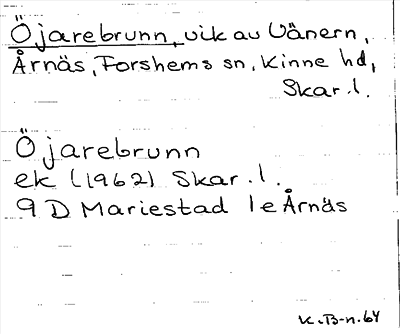 Öjarebrunn, vik av Vänern,
Årnäs, Forshems sn, Kinne hd,
Skar. l.
Öjarebrunn
ek (1962) Skar. l.
9 D Mariestad 1e Årnäs
K. B-n. 64